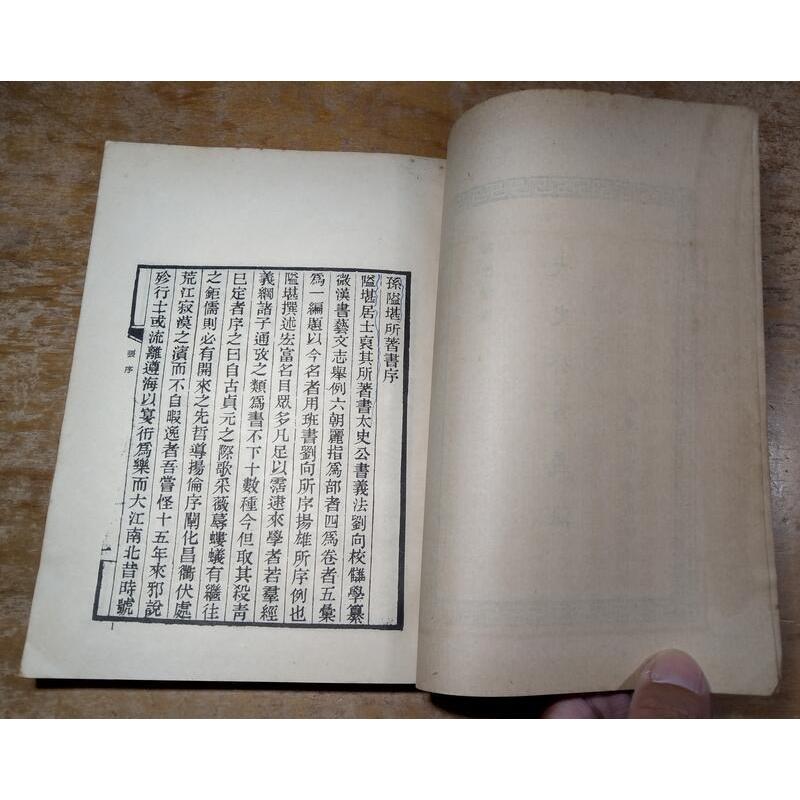 孫隘堪所著書序
隘堪居士裒其所著書太史公書義法劉向校讎學纂
微漢書藝文志舉例六朝麗指爲部者四爲卷者五彙
爲一編題以今名者用班書劉向所序揚雄所序例也
隘堪撰述宏富名目眾多凡足以霑逮來學者若羣經
義綱諸子通攷之類爲書不下十數種今但取其殺靑
巳定者序之曰自古貞元之際歌采薇蓦螻蟻有繼往
之鉅儒則必有開來之先哲導揚倫序闡化昌衢伏處
荒江寂漠之濱而不自暇逸者吾嘗怪十五年來邪說
殄行士或流離遵海以宴衎爲樂而大江南北昔時號
張序
一